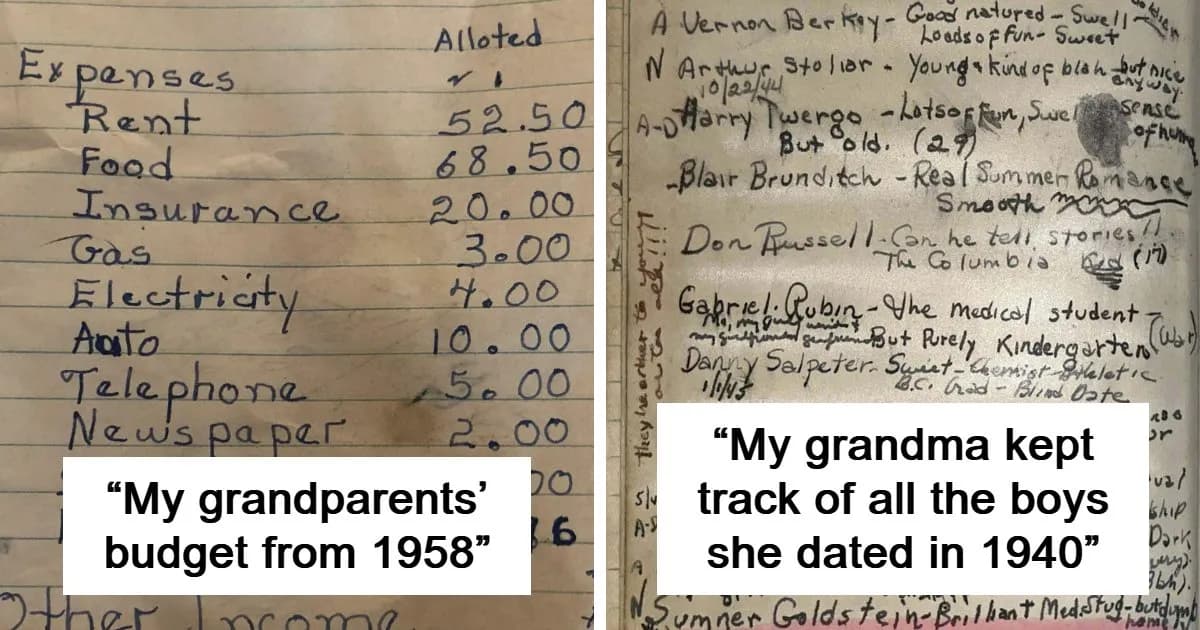 Alloted
Expenses
Rent 52.50
Food 68.50
Insurance 20.00
Gas 3.00
Electricity 4.00
Auto 10.00
Telephone 5.00
Newspaper 2.00
00
6
Other Income
“My grandparents’
budget from 1958”
A Vernon Berkey - Good natured - Swell -
Loads of fun - Sweet
N Arthur Stoliar - Young & kind of blah but nice
10/22/44 anyway.
A-D Harry Twergo - Lots of fun, Swel sense
But old. (29) of humo
- Blair Brunditch - Real Summer Romance
Smooth
Don Russell - Can he tell stories!!
The Columbia Kid (17)
Gabriel Rubin - The medical student -
But Purely Kindergarten (War)
Danny Salpeter - Sweet - Chemist - Athletic
1/1/45 B.C. Grad - Blind Date
They hearken to
“My grandma kept
track of all the boys
she dated in 1940”
or
ual
ship
A-S Dark
A
N Sumner Goldstein - Brilliant Med Stug - but dumb